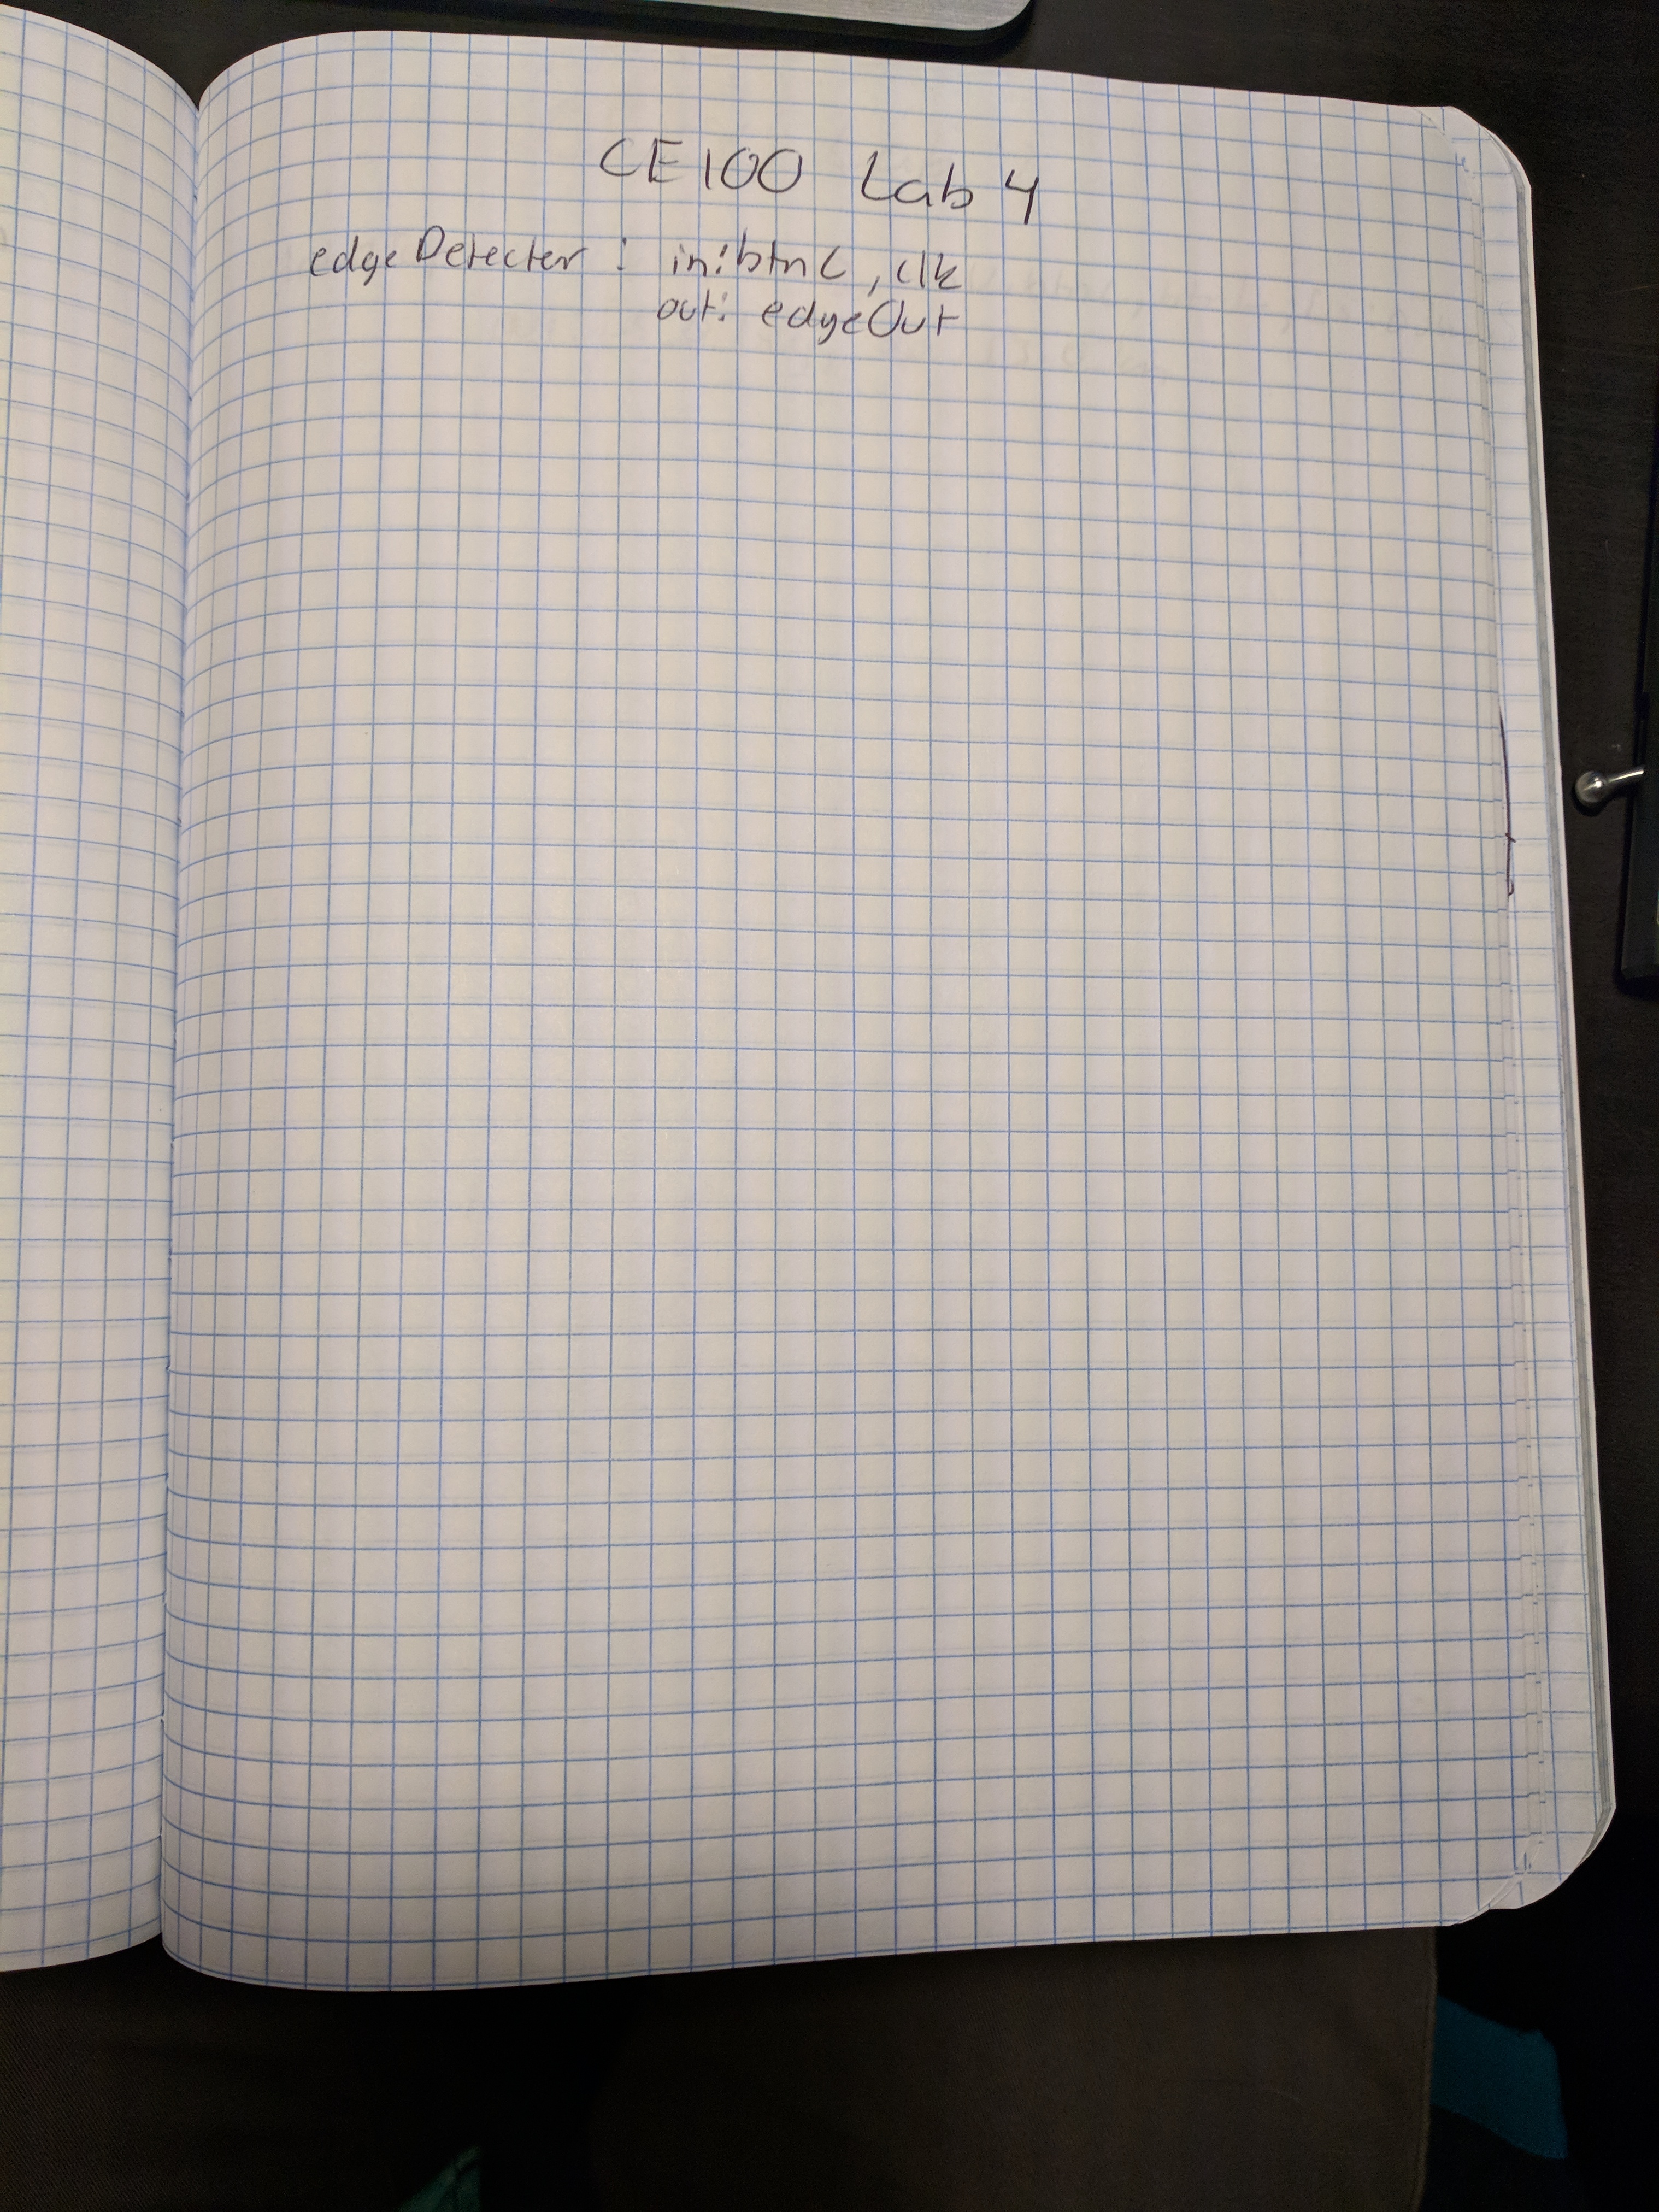 CE100 Lab 4
edgeDetecter : in: btnC, clk
out: edgeOut